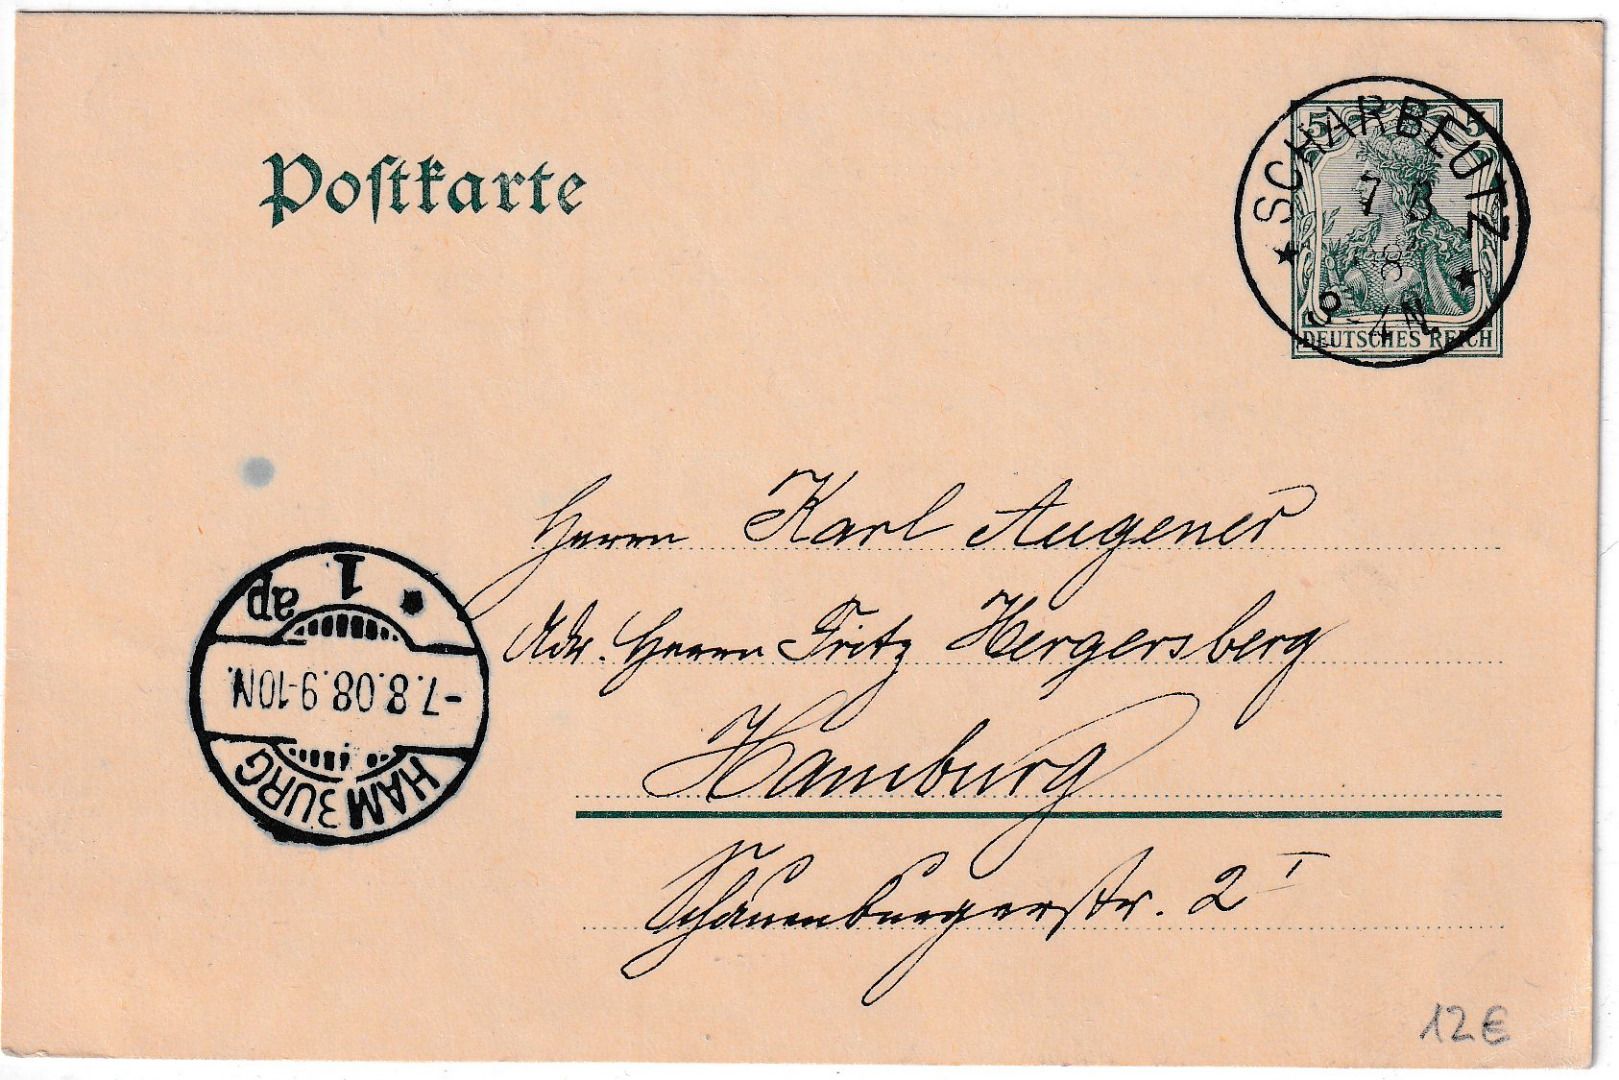 Postkarte
5 5
DEUTSCHES REICH
SCHARBEUTZ
7 8
8
3-4N.
Herrn Karl Augener
Adr. Herrn Fritz Hergersberg
Hamburg
Schauenburgerstr. 2 I
HAMBURG
-7.8.08.9-10N.
* 1 ap
12€